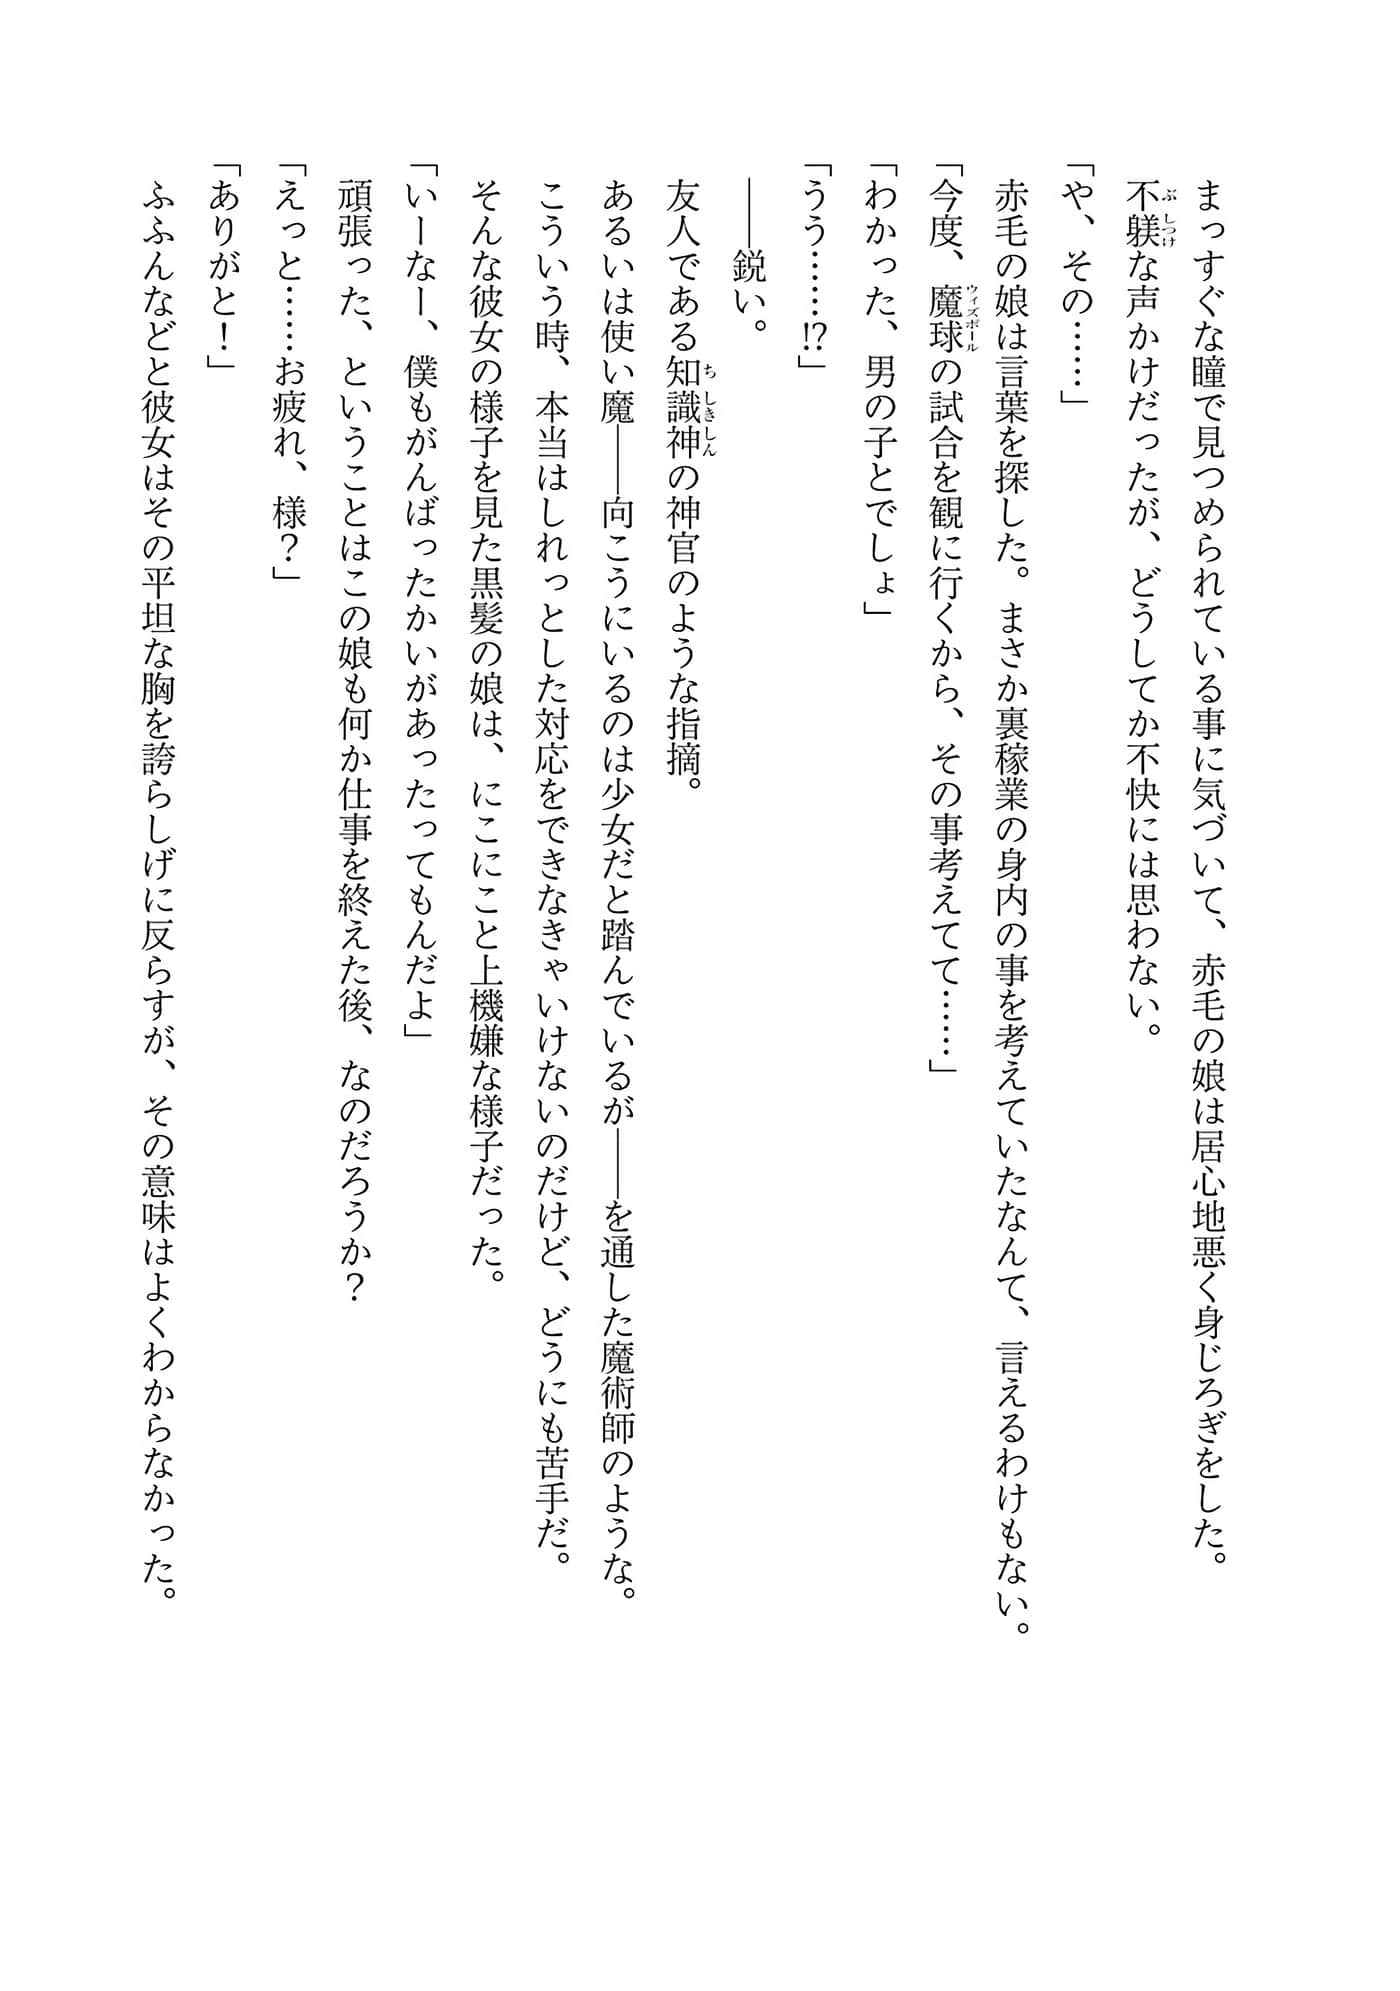 まっすぐな瞳で見つめられている事に気づいて、赤毛の娘は居心地悪く身じろぎをした。
不躾な声かけだったが、どうしてか不快には思わない。
「や、その……」
赤毛の娘は言葉を探した。まさか裏稼業の身内の事を考えていたなんて、言えるわけもない。
「今度、魔球の試合を観に行くから、その事考えてて……」
「わかった、男の子とでしょ」
「うう……⁉」
――鋭い。
友人である知識神の神官のような指摘。
あるいは使い魔――向こうにいるのは少女だと踏んでいるが――を通した魔術師のような。
こういう時、本当はしれっとした対応をできなきゃいけないのだけど、どうにも苦手だ。
そんな彼女の様子を見た黒髪の娘は、にこにこと上機嫌な様子だった。
「いーなー、僕もがんばったかいがあったってもんだよ」
頑張った、ということはこの娘も何か仕事を終えた後、なのだろうか？
「えっと……お疲れ、様？」
「ありがと！」
ふふんなどと彼女はその平坦な胸を誇らしげに反らすが、その意味はよくわからなかった。